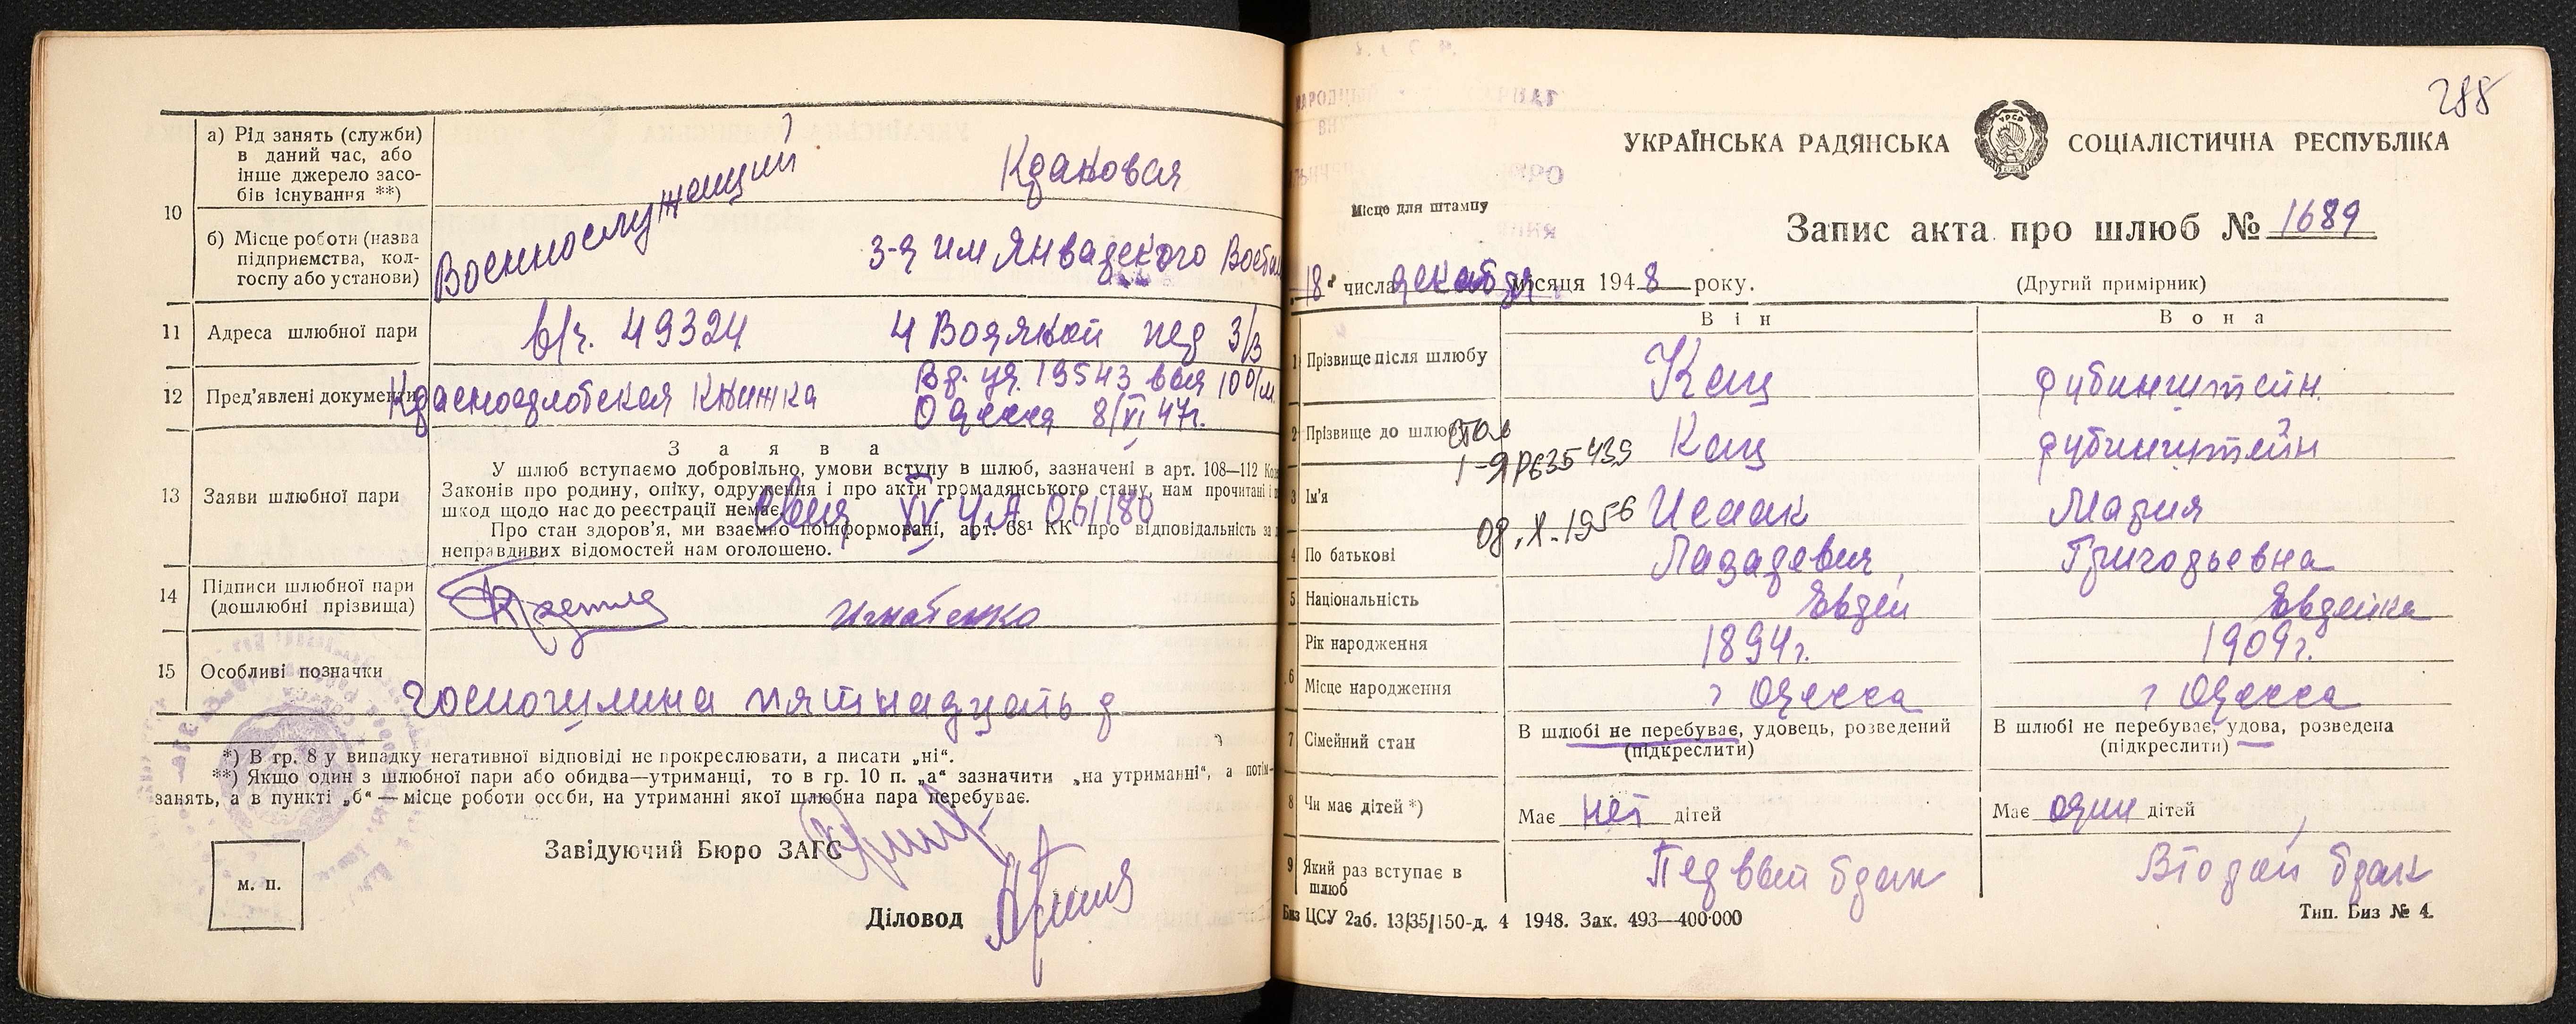 10
а) Рід занять (служби)
в даний час, або
інше джерело засо-
бів існування **)
Военнослужащий
Крановая
б) Місце роботи (назва
підприємства, кол-
госпу або установи)
3-д им Январского Восстан
11 Адреса шлюбної пари
в/ч. 49324
4 Водяной пер 3/3
12 Пред'явлені документи
Красноармейская Книжка
Вр. уд. 19543 выд 10 о/м.
Одесса 8/VI 47г.
З а я в а
13 Заяви шлюбної пари
У шлюб вступаємо добровільно, умови вступу в шлюб, зазначені в арт. 108—112
Законів про родину, опіку, одруження і про акти громадянського стану, нам прочитані і
шкод щодо нас до реєстрації немає.
XV ЧА 061180
Про стан здоров'я, ми взаємно поінформовані, арт. 68¹ КК про відповідальність за
неправдивих відомостей нам оголошено.
14 Підписи шлюбної пари
(дошлюбні прізвища)
15 Особливі позначки
Госпошлина пятнадцать р
*) В гр. 8 у випадку негативної відповіді не прокреслювати, а писати „ні“.
**) Якщо один з шлюбної пари або обидва—утриманці, то в гр. 10 п. „а“ зазначити „на утриманні“, а потім
занять, а в пункті „б“ — місце роботи особи, на утриманні якої шлюбна пара перебуває.
м. п.
Завідуючий Бюро ЗАГС
Діловод
288
УКРАЇНСЬКА РАДЯНСЬКА СОЦІАЛІСТИЧНА РЕСПУБЛІКА
УРСР
Місце для штампу
Запис акта про шлюб № 1689
18 числа декабря місяця 1948 року.
(Другий примірник)
Він
Вона
1 Прізвище після шлюбу
Кац
Рубинштейн
2 Прізвище до шлюбу
Кац
Рубинштейн
I-ЯР 635439
3 Ім'я
Исаак
Мария
08.X.1956
4 По батькові
Лазаревич
Григорьевна
5 Національність
Еврей
Еврейка
6
Рік народження
1894г.
1909г.
Місце народження
г Одесса
г Одесса
7 Сімейний стан
В шлюбі не перебуває, удовець, розведений
(підкреслити)
В шлюбі не перебуває, удова, розведена
(підкреслити)
8 Чи має дітей *)
Має нет дітей
Має один дітей
9 Який раз вступає в
шлюб
Первый брак
Второй брак
Биз ЦСУ 2аб. 13/35/150-д. 4 1948. Зак. 493—400·000
Тип. Биз № 4.